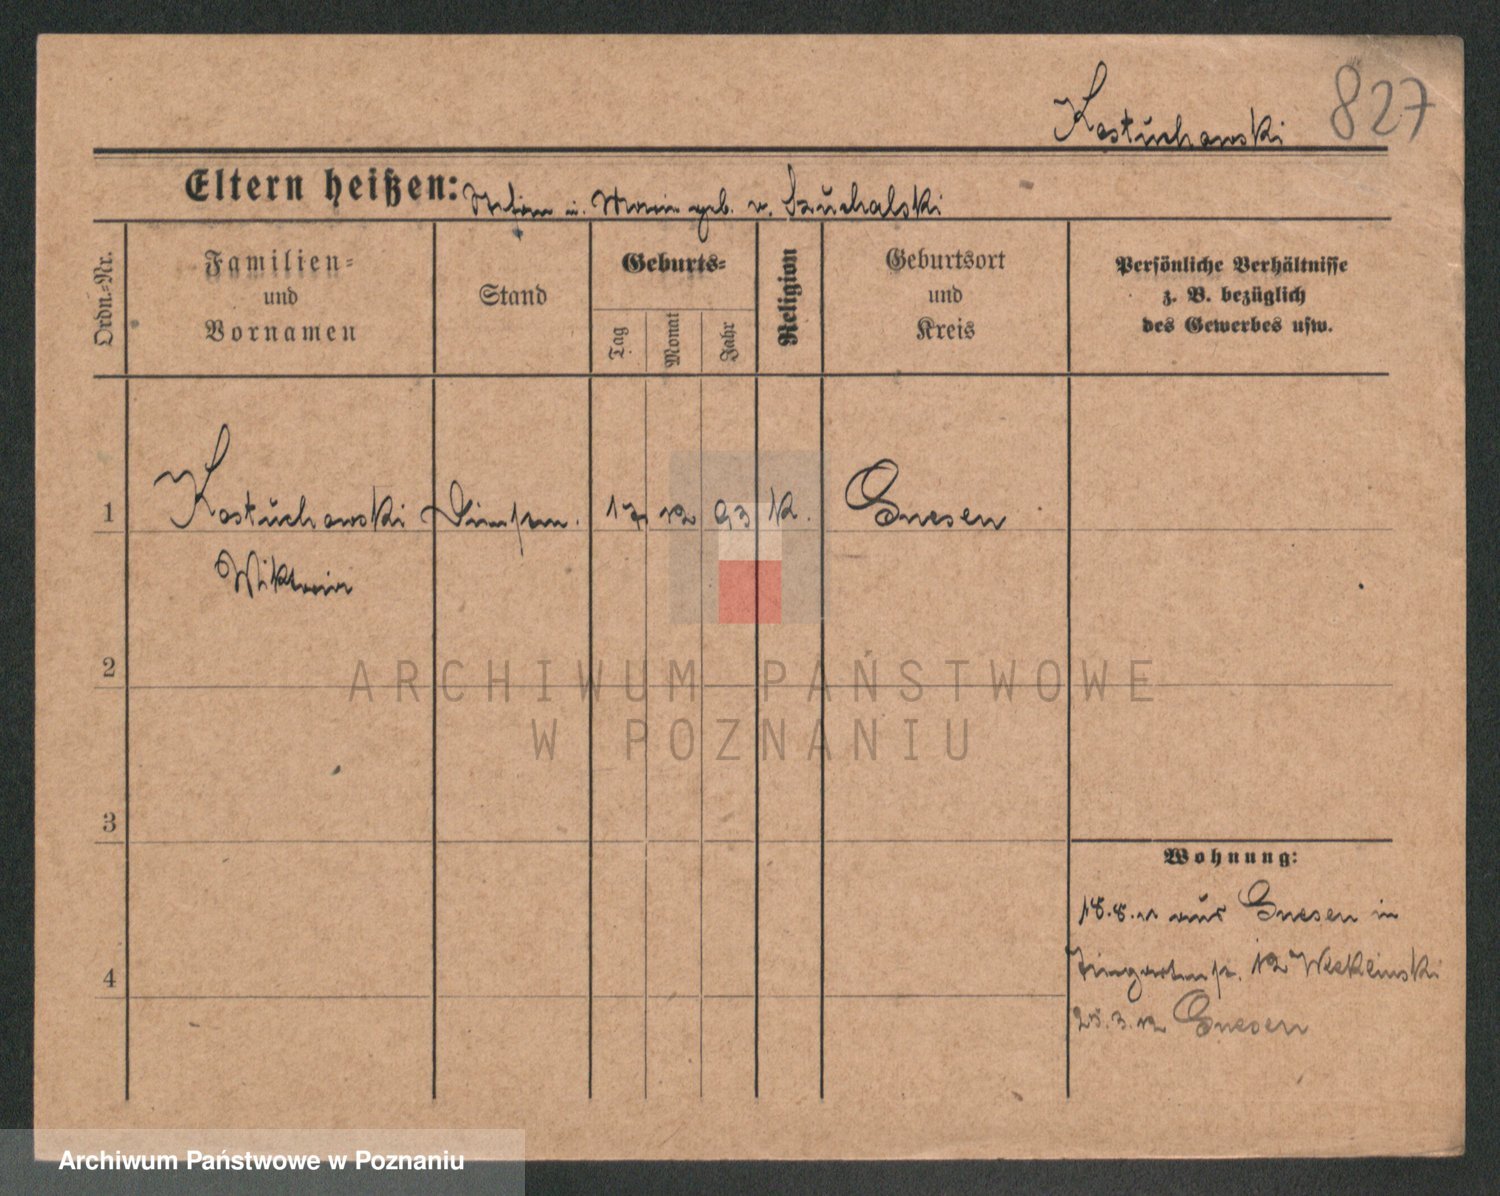 827
Kostuchowski
Eltern heißen: u. geb. v. Szuchalski
Ordn.-Nr.
Familien- und Vornamen
Stand
Geburts-
Tag
Monat
Jahr
Religion
Geburtsort und Kreis
Persönliche Verhältnisse
z. B. bezüglich
des Gewerbes usw.
1 Kostuchowski 17 12 93 k. Gnesen
2
3
4
Wohnung:
18.8.11 aus Gnesen in
12
25.3.12 Gnesen
ARCHIWUM PAŃSTWOWE
W POZNANIU
Archiwum Państwowe w Poznaniu